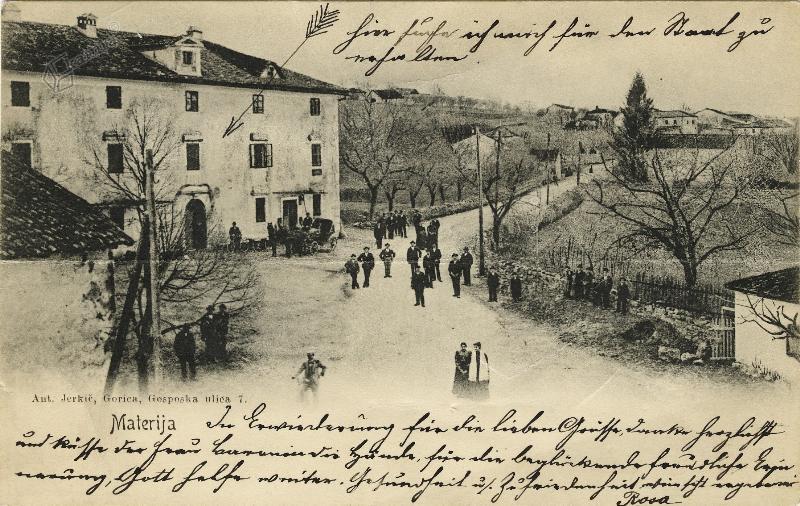 hier suche ich mich für den Staat zu
erhalten
Ant. Jerkič, Gorica, Gosposka ulica 7.
Materija
In Erwiederung für die lieben Grüsse, danke herzlichst
und küsse der Frau Baronin die Hände, für die beglückende freudliche Erin
nerung, Gott helfe weiter. Gesundheit u. Zufriedenheit wünscht ergebene
Rosa